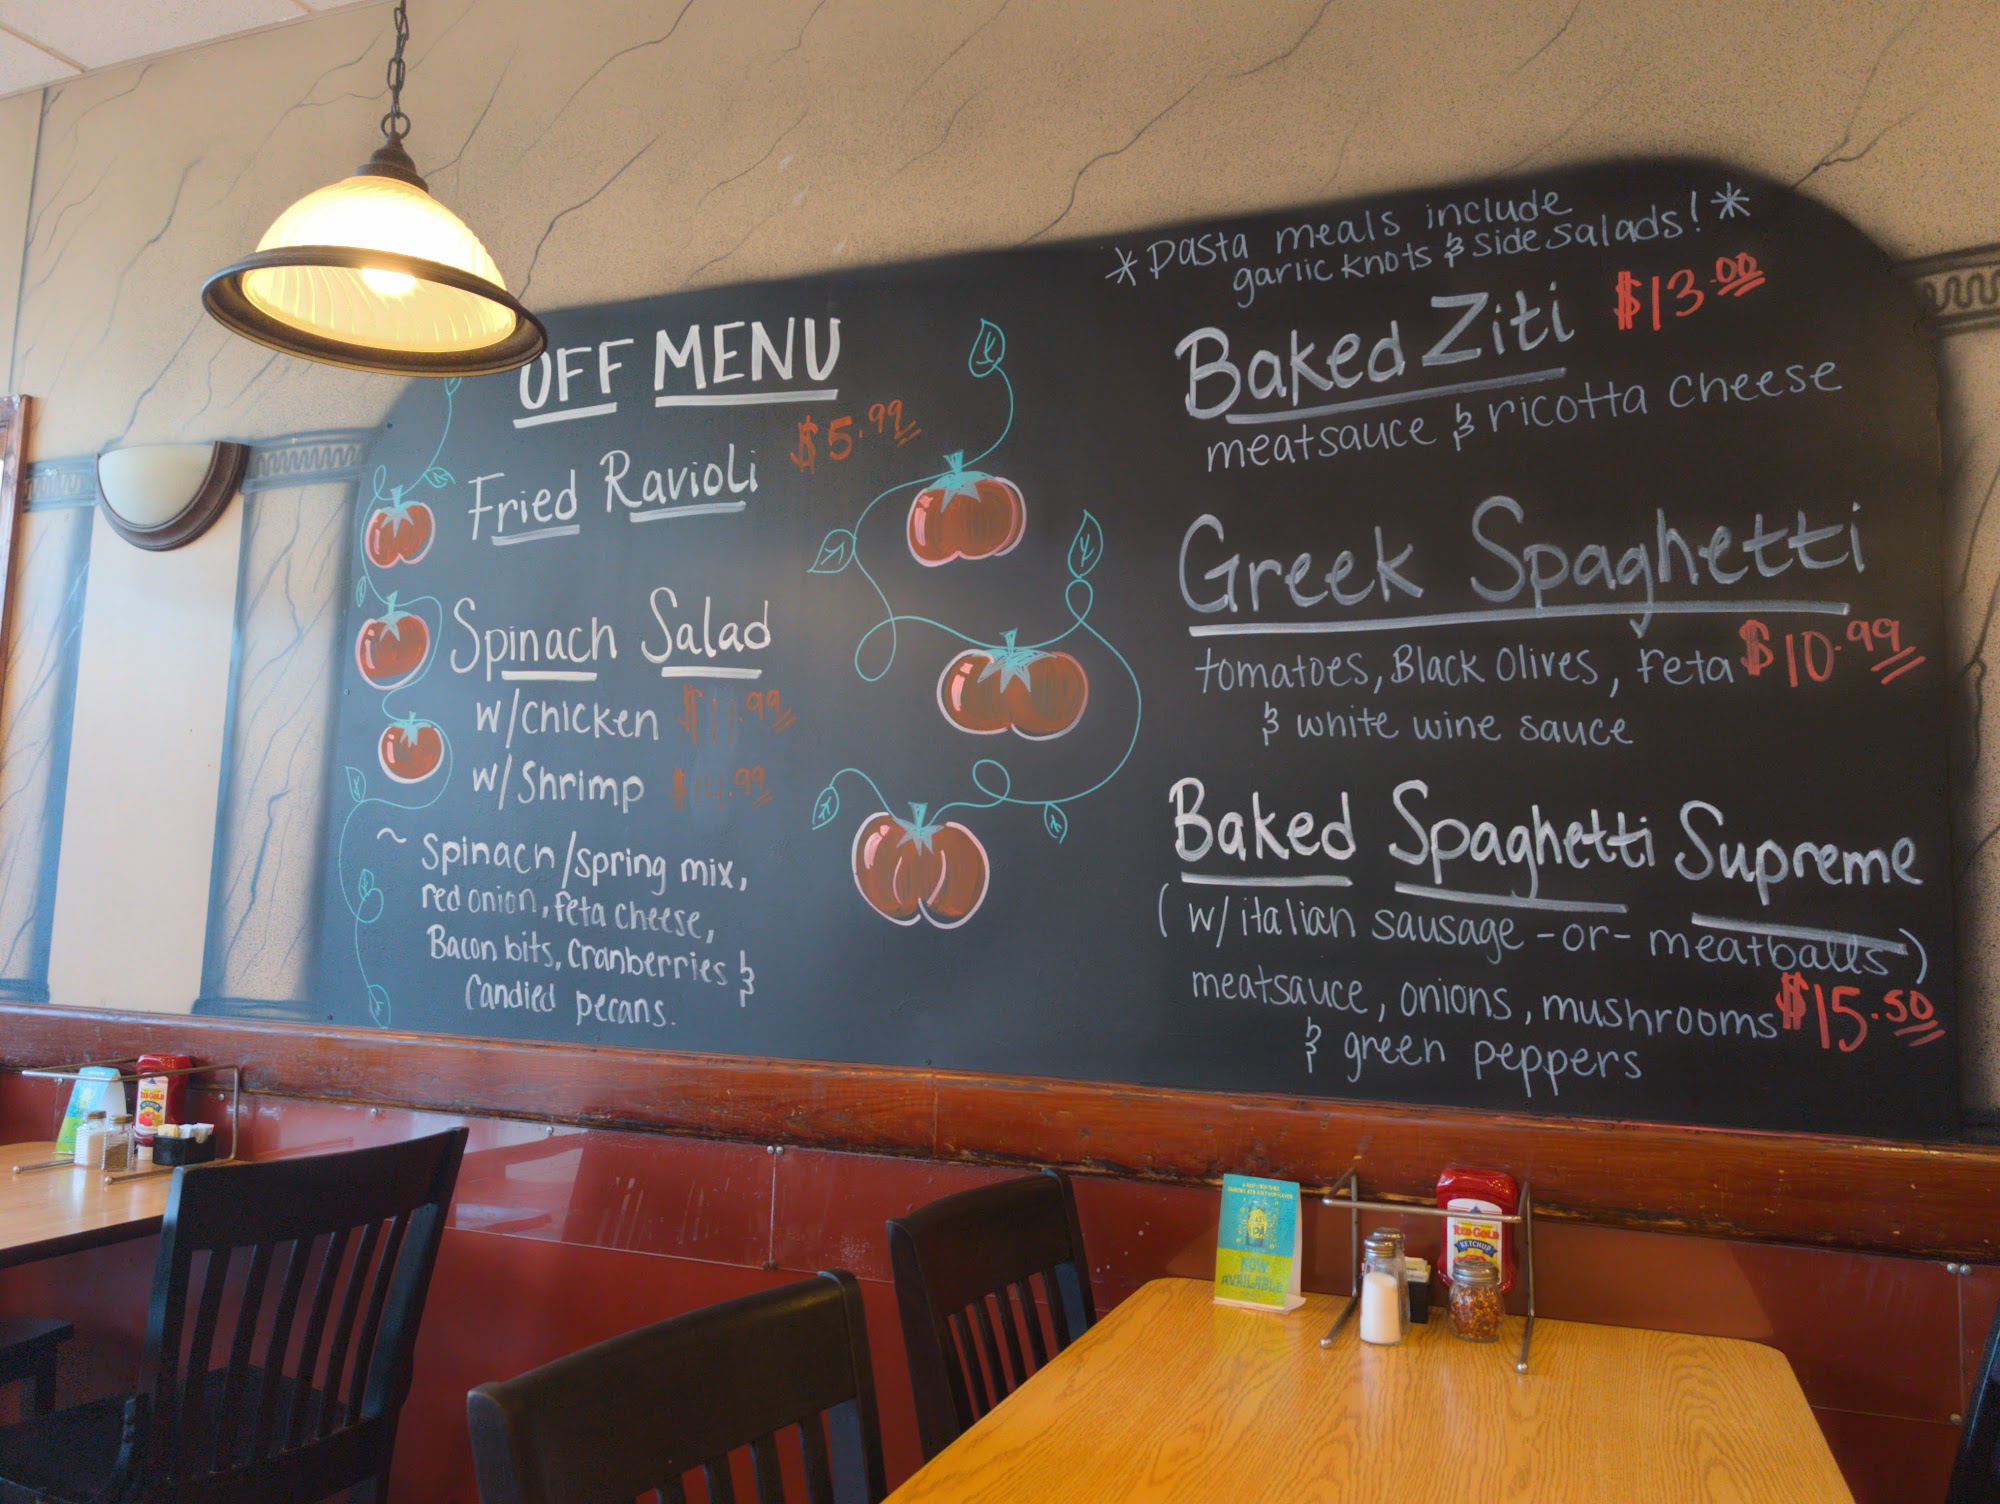 OFF MENU
Fried Ravioli $5.99
Spinach Salad
w/chicken $11.99
w/shrimp $14.99
~ spinach/spring mix,
red onion, feta cheese,
Bacon bits, cranberries &
candied pecans.
*pasta meals include
garlic knots & side salads!*
Baked Ziti $13.00
meatsauce & ricotta cheese
Greek Spaghetti
tomatoes, Black Olives, feta $10.99
& white wine sauce
Baked Spaghetti Supreme
(w/italian sausage -or- meatballs)
meatsauce, onions, mushrooms $15.50
& green peppers
NOW
AVAILABLE
RED GOLD
KETCHUP
RED GOLD